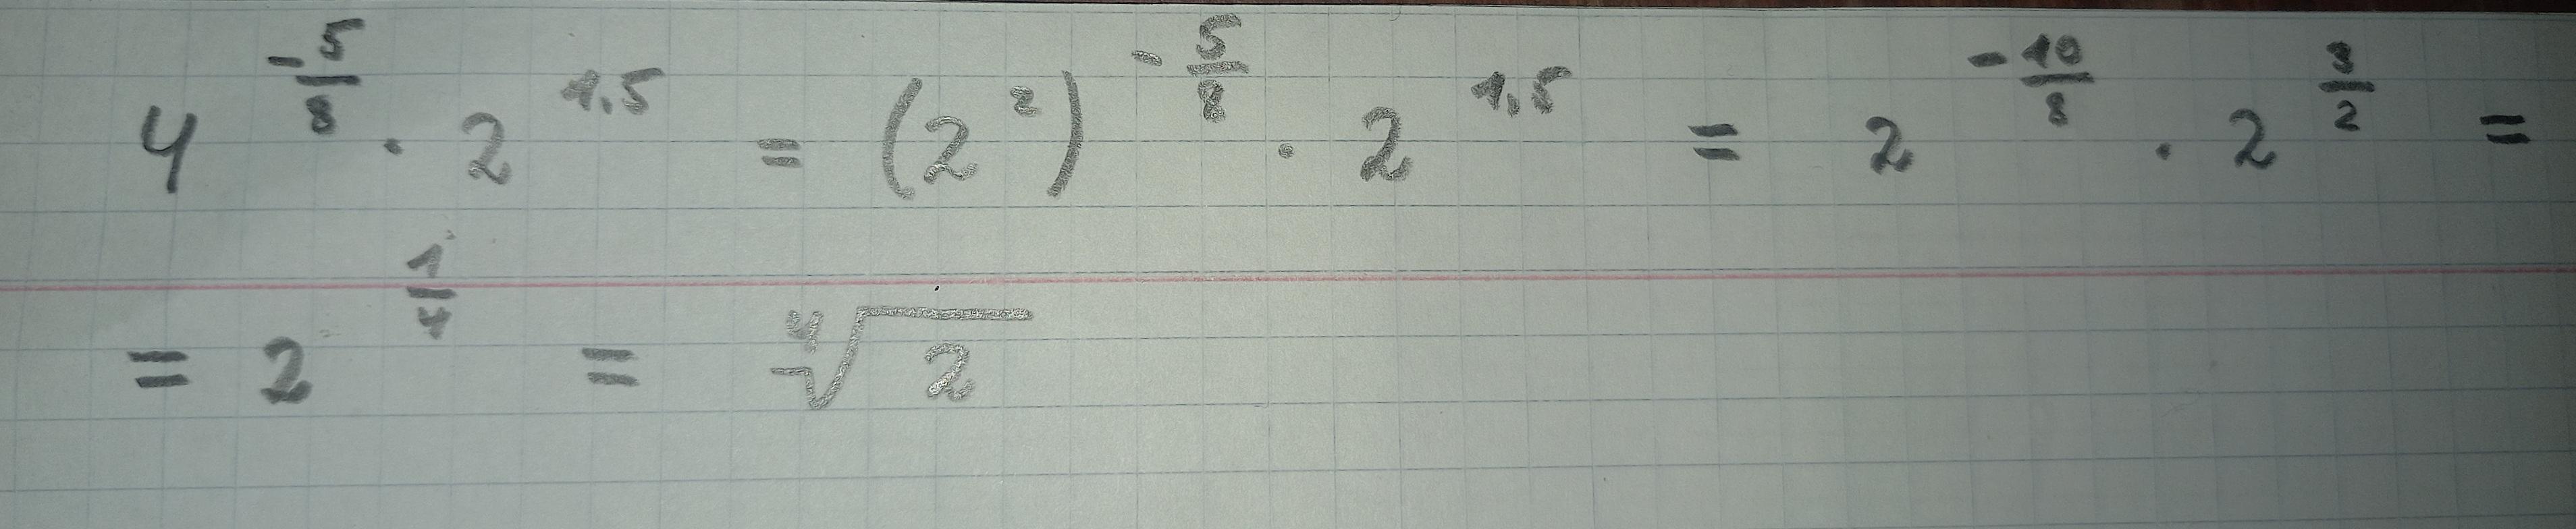 4^{-\frac{5}{8}} · 2^{1,5} = (2^2)^{-\frac{5}{8}} · 2^{1,5} = 2^{-\frac{10}{8}} · 2^{\frac{3}{2}} =
= 2^{\frac{1}{4}} = \sqrt[4]{2}